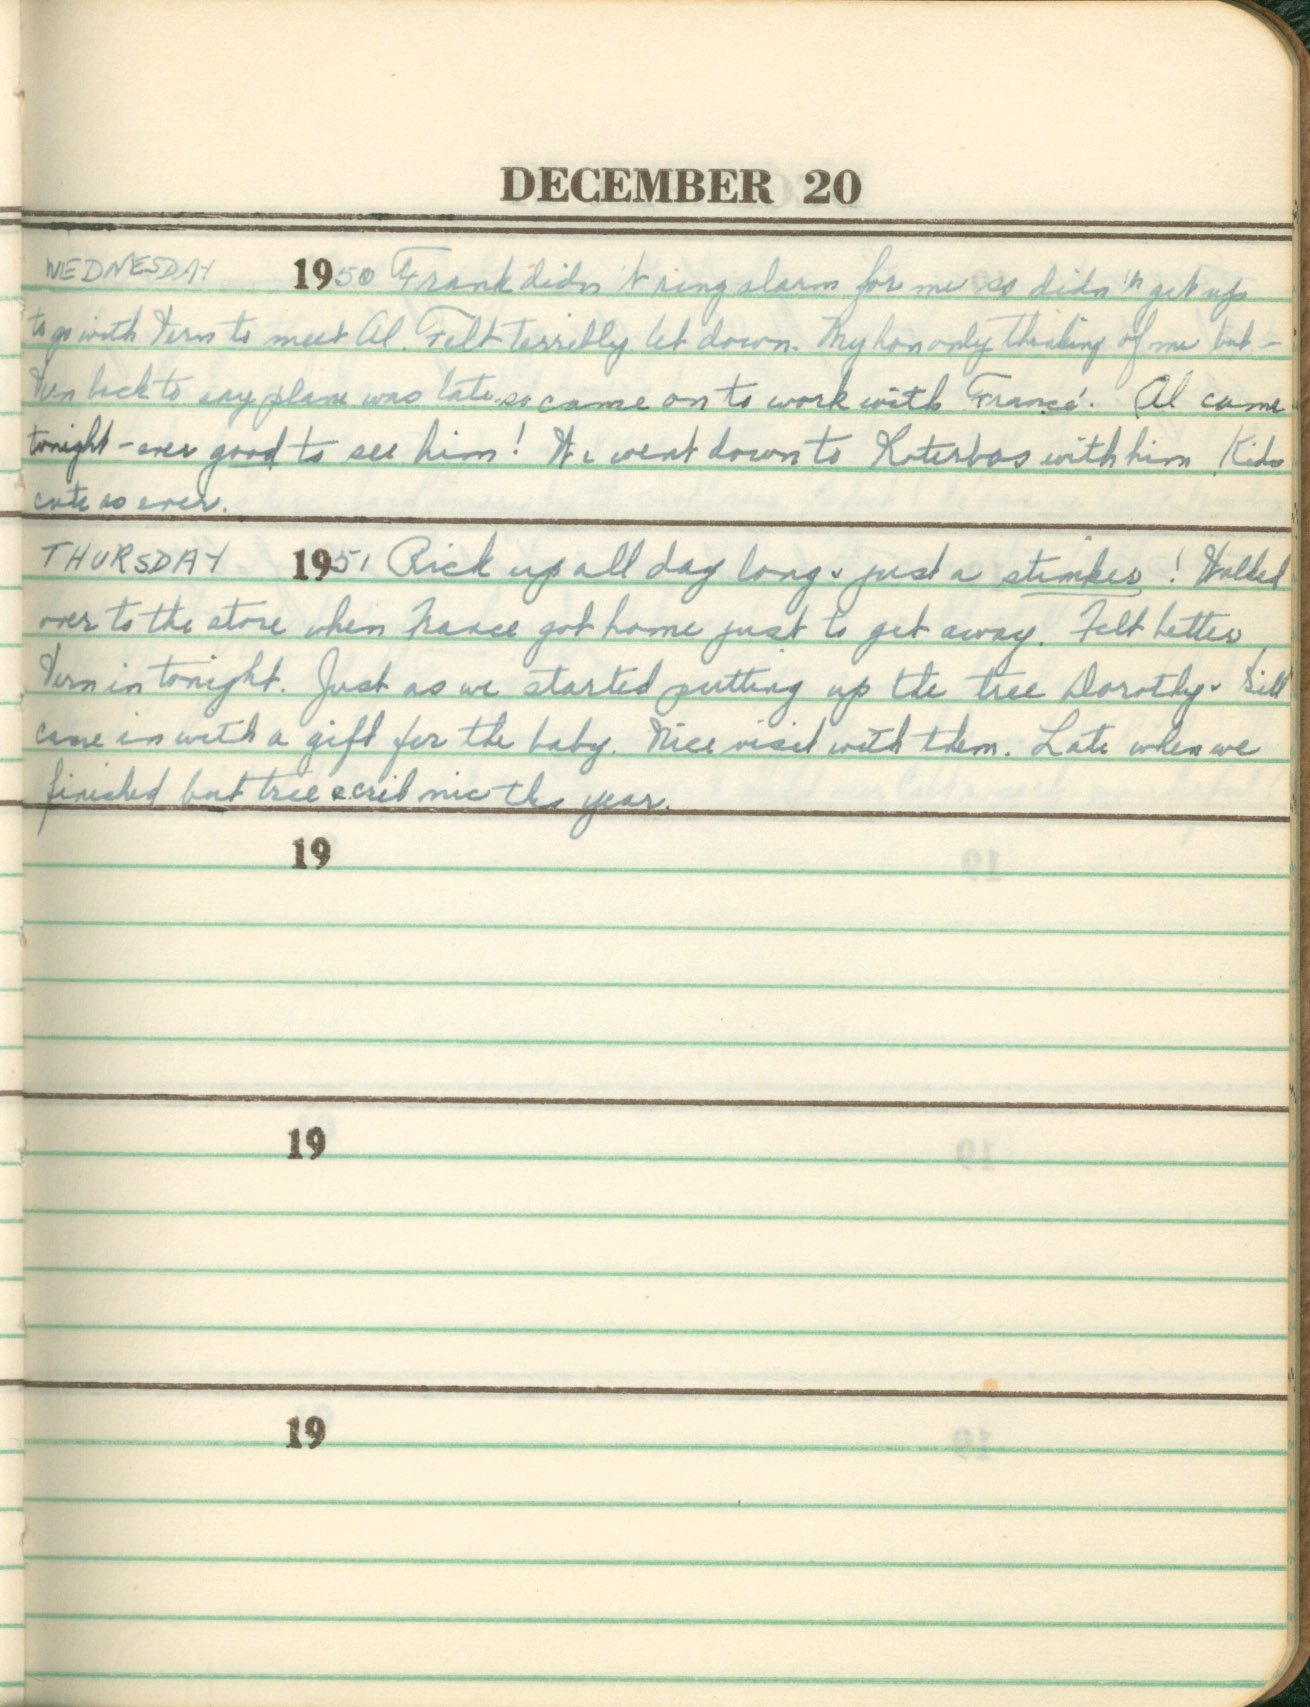 DECEMBER 20
WEDNESDAY 1950 Frank didn't ring alarm for me so didn't get up
to go with Vern to meet Al. Felt terribly let down. My hon only thinking of me but -
Vern back to say plane was late so came on to work with France. Al came
tonight - ever good to see him! We went down to Koterbas with him Kids
cute as ever.
THURSDAY 1951 Rick up all day long & just a stinker! Walked
over to the store when France got home just to get away. Felt better
Vern in tonight. Just as we started putting up the tree Dorothy & Bill
came in with a gift for the baby. Nice visit with them. Late when we
finished but tree nice this year.
19
19
19